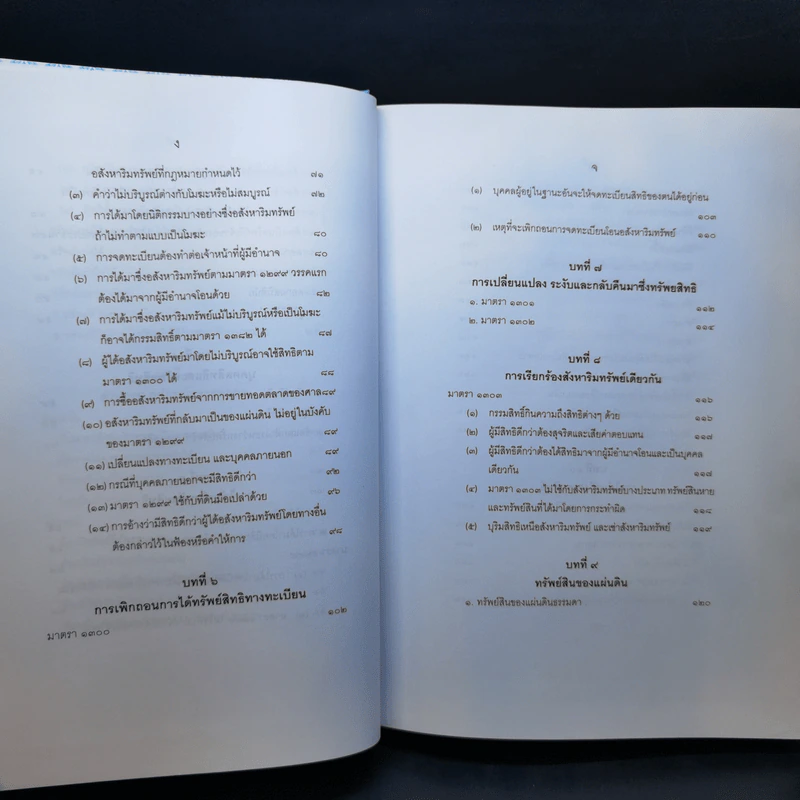 ง
อสังหาริมทรัพย์ที่กฎหมายกำหนดไว้ ๗๑
(๓) คำว่าไม่บริบูรณ์ต่างกับโมฆะหรือไม่สมบูรณ์ ๗๒
(๔) การได้มาโดยนิติกรรมบางอย่างซึ่งอสังหาริมทรัพย์
ถ้าไม่ทำตามแบบเป็นโมฆะ ๘๐
(๕) การจดทะเบียนต้องทำต่อเจ้าหน้าที่ผู้มีอำนาจ ๘๐
(๖) การได้มาซึ่งอสังหาริมทรัพย์ตามมาตรา ๑๒๙๙ วรรคแรก
ต้องได้มาจากผู้มีอำนาจโอนด้วย ๘๒
(๗) การได้มาซึ่งอสังหาริมทรัพย์แม้ไม่บริบูรณ์หรือเป็นโมฆะ
ก็อาจได้กรรมสิทธิ์ตามมาตรา ๑๓๘๒ ได้ ๘๗
(๘) ผู้ได้อสังหาริมทรัพย์มาโดยไม่บริบูรณ์อาจใช้สิทธิตาม
มาตรา ๑๓๐๐ ได้ ๘๘
(๙) การซื้ออสังหาริมทรัพย์จากการขายทอดตลาดของศาล ๘๙
(๑๐) อสังหาริมทรัพย์ที่กลับมาเป็นของแผ่นดิน ไม่อยู่ในบังคับ
ของมาตรา ๑๒๙๙ ๘๙
(๑๑) เปลี่ยนแปลงทางทะเบียน และบุคคลภายนอก ๘๙
(๑๒) กรณีที่บุคคลภายนอกจะมีสิทธิดีกว่า ๙๒
(๑๓) มาตรา ๑๒๙๙ ใช้กับที่ดินมือเปล่าด้วย ๙๖
(๑๔) การอ้างว่ามีสิทธิดีกว่าผู้ได้อสังหาริมทรัพย์โดยทางอื่น
ต้องกล่าวไว้ในฟ้องหรือคำให้การ ๙๘
บทที่ ๖
การเพิกถอนการได้ทรัพย์สิทธิทางทะเบียน
มาตรา ๑๓๐๐ ๑๐๒
จ
(๑) บุคคลผู้อยู่ในฐานะอันจะให้จดทะเบียนสิทธิของตนได้อยู่ก่อน
๑๐๓
(๒) เหตุที่จะเพิกถอนการจดทะเบียนโอนอสังหาริมทรัพย์ ๑๑๐
บทที่ ๗
การเปลี่ยนแปลง ระงับและกลับคืนมาซึ่งทรัพยสิทธิ
๑. มาตรา ๑๓๐๑ ๑๑๒
๒. มาตรา ๑๓๐๒ ๑๑๔
บทที่ ๘
การเรียกร้องสังหาริมทรัพย์เดียวกัน
มาตรา ๑๓๐๓ ๑๑๖
(๑) กรรมสิทธิ์กินความถึงสิทธิต่างๆ ด้วย ๑๑๖
(๒) ผู้มีสิทธิดีกว่าต้องสุจริตและเสียค่าตอบแทน ๑๑๗
(๓) ผู้มีสิทธิดีกว่าต้องได้สิทธิมาจากผู้มีอำนาจโอนและเป็นบุคคล
เดียวกัน ๑๑๗
(๔) มาตรา ๑๓๐๓ ไม่ใช้กับสังหาริมทรัพย์บางประเภท ทรัพย์สินหาย
และทรัพย์สินที่ได้มาโดยการกระทำผิด ๑๑๘
(๕) บุริมสิทธิเหนือสังหาริมทรัพย์ และเช่าสังหาริมทรัพย์ ๑๑๙
บทที่ ๙
ทรัพย์สินของแผ่นดิน
๑. ทรัพย์สินของแผ่นดินธรรมดา ๑๒๐